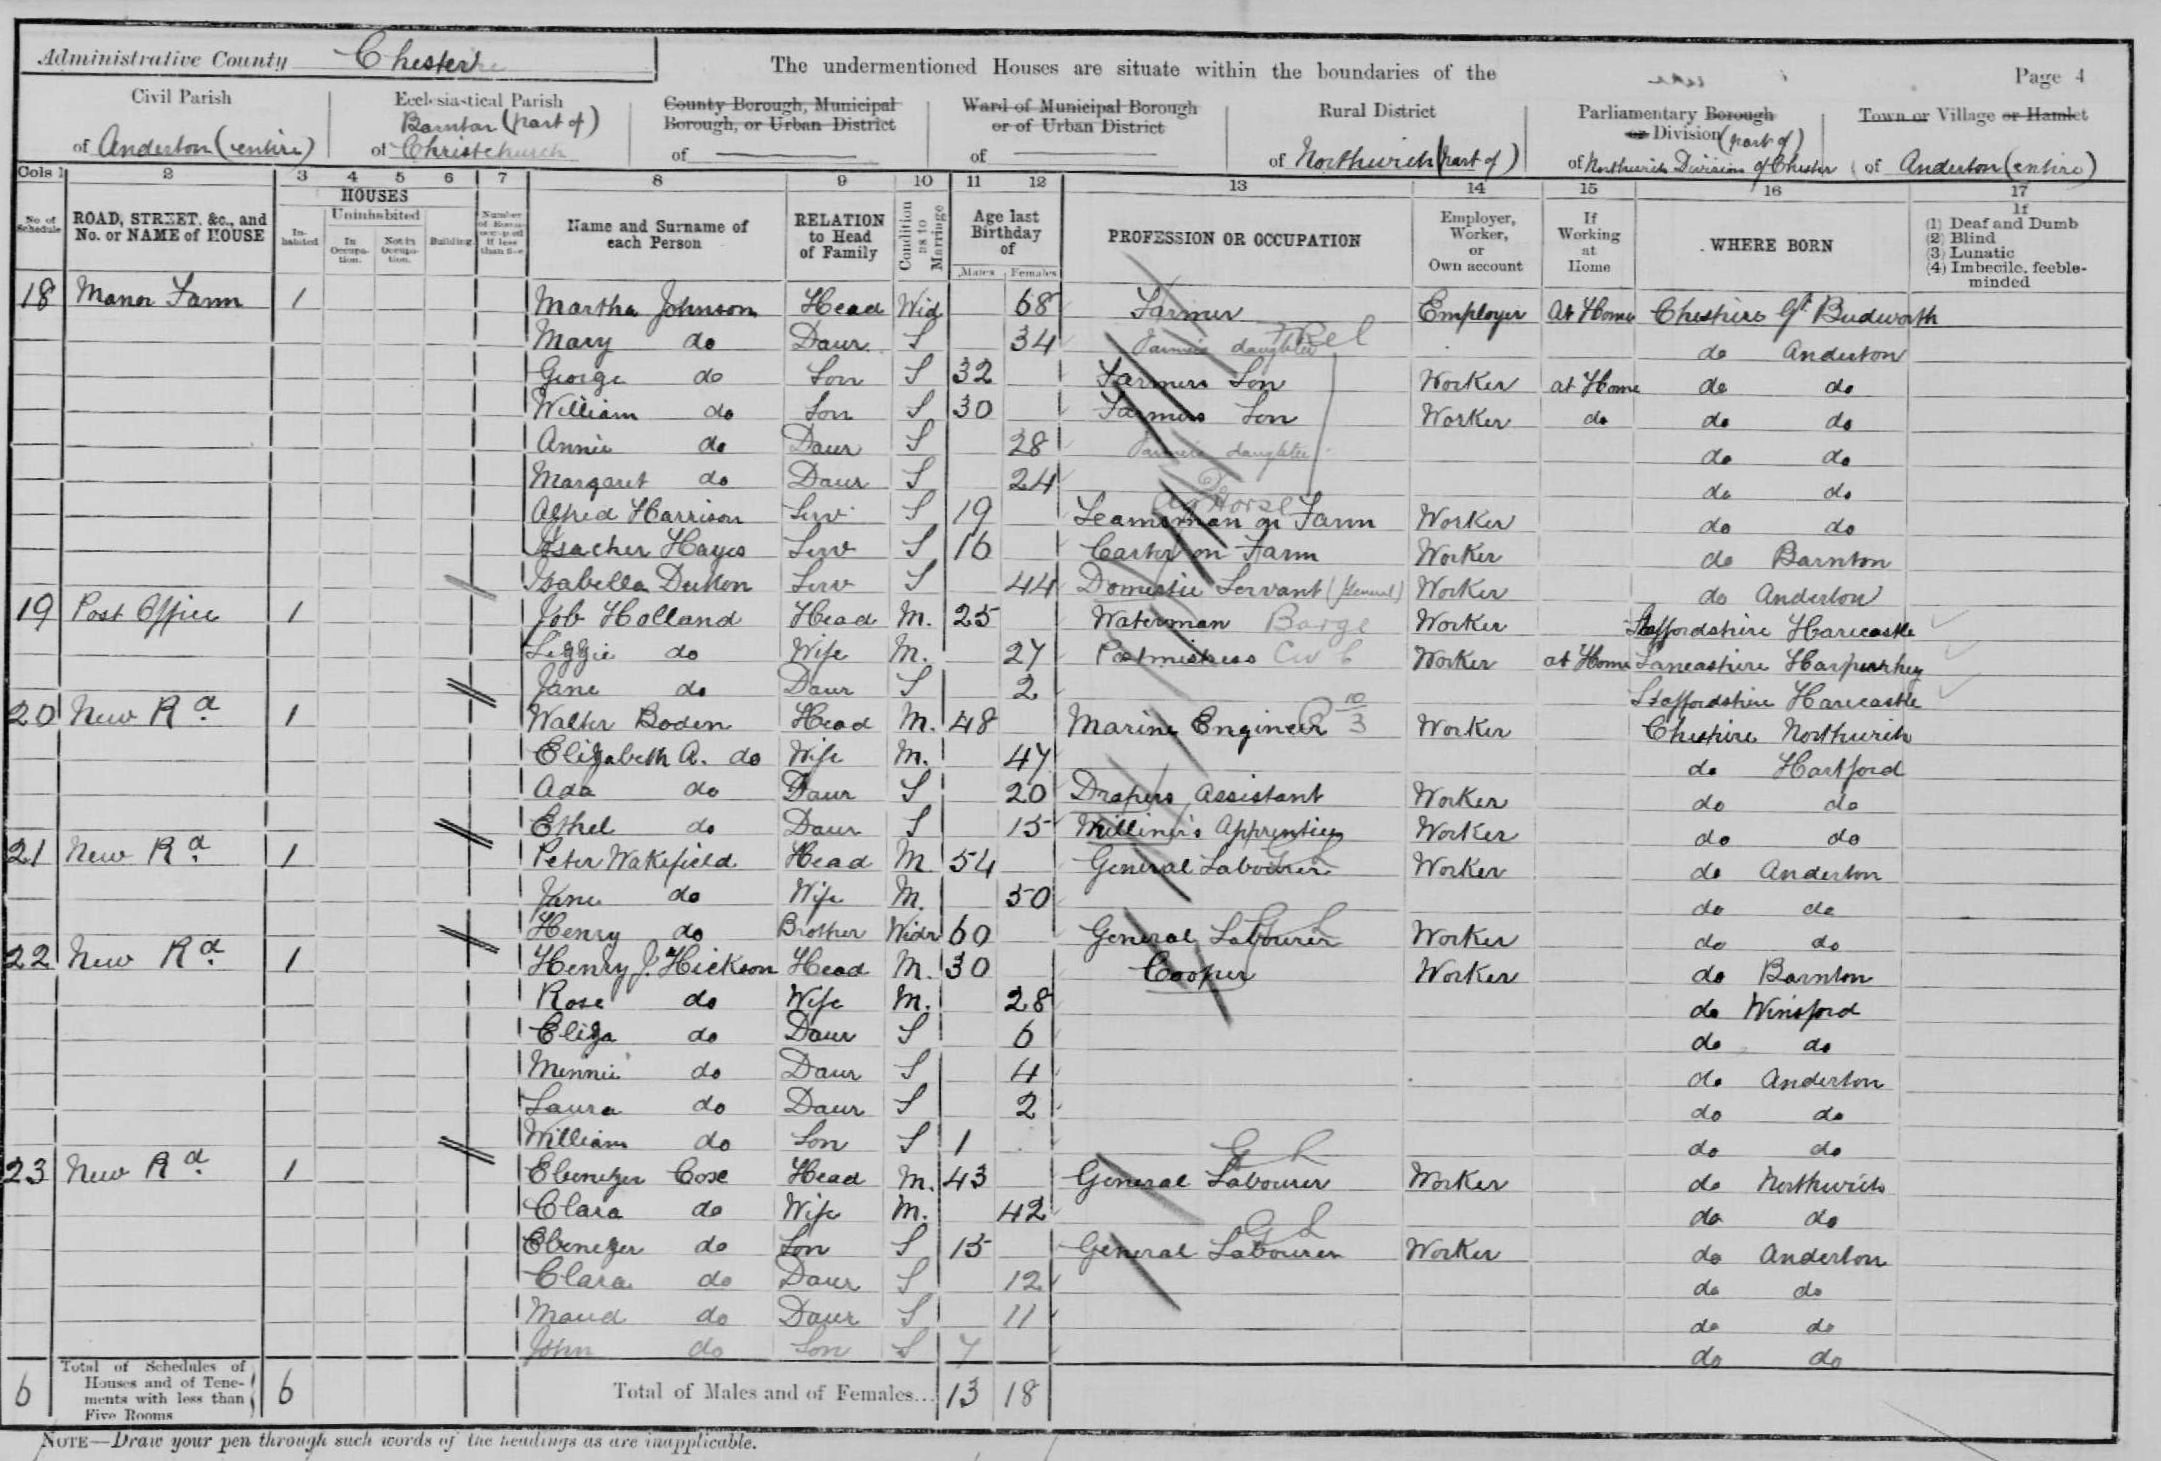 Administrative County Chester
The undermentioned Houses are situate within the boundaries of the
Page 4
Civil Parish of Anderton (entire)
Ecclesiastical Parish Barnton (part of) of Christchurch
County Borough, Municipal Borough, or Urban District of
Ward of Municipal Borough or of Urban District of
Rural District of Northwich (part of)
Parliamentary Borough or Division (part of) of Northwich Division of Chester
Town or Village or Hamlet of Anderton (entire)
Cols 1 2 3 4 5 6 7 8 9 10 11 12 13 14 15 16 17
No of Schedule
ROAD, STREET, &c., and No. or NAME of HOUSE
HOUSES
Inhabited
Uninhabited
In Occupation.
Not in Occupation.
Building
Number of Rooms occupied if less than five
Name and Surname of each Person
RELATION to Head of Family
Condition as to Marriage
Age last Birthday of
Males Females
PROFESSION OR OCCUPATION
Employer, Worker, or Own account
If Working at Home
WHERE BORN
If (1) Deaf and Dumb (2) Blind (3) Lunatic (4) Imbecile, feeble-minded
18 Manor Farm 1 Martha Johnson Head Wid 68 Farmer Employer At Home Cheshire Gt Budworth
Mary do Daur S 34 Farmer's daughter Rel do Anderton
George do Son S 32 Farmers Son Worker at Home do do
William do Son S 30 Farmers Son Worker do do do
Annie do Daur S 28 Farmer's daughter do do
Margaret do Daur S 24 do do
Alfred Harrison Serv S 19 Teamsman on Farm Ag Horse Worker do do
Issacher Hayes Serv S 16 Carter on Farm Worker do Barnton
Isabella Dutton Serv S 44 Domestic Servant (General) Worker do Anderton
19 Post Office 1 Job Holland Head M. 25 Waterman Barge Worker Staffordshire Harecastle
Lizzie do Wife M. 27 Postmistress Worker at Home Lancashire Harpurhey
Jane do Daur S 2 Staffordshire Harecastle
20 New Rd 1 Walter Boden Head M. 48 Marine Engineer 10 3 Worker Cheshire Northwich
Elizabeth A. do Wife M. 47 do Hartford
Ada do Daur S 20 Drapers Assistant Worker do do
Ethel do Daur S 15 Milliner's Apprentice Worker do do
21 New Rd 1 Peter Wakefield Head M 54 General Labourer G L Worker do Anderton
Jane do Wife M. 50 do do
Henry do Brother Widr 60 General Labourer G L Worker do do
22 New Rd 1 Henry J. Hickson Head M. 30 Cooper Worker do Barnton
Rose do Wife M. 28 do Winsford
Eliza do Daur S 6 do do
Minnie do Daur S 4 do Anderton
Laura do Daur S 2 do do
William do Son S 1 do do
23 New Rd 1 Ebenezer Coxe Head M. 43 General Labourer G L Worker do Northwich
Clara do Wife M. 42 do do
Ebenezer do Son S 15 General Labourer G L Worker do Anderton
Clara do Daur S 12 do do
Maud do Daur S 11 do do
John do Son S 7 do do
6 Total of Schedules of Houses and of Tenements with less than Five Rooms 6 Total of Males and of Females... 13 18
NOTE—Draw your pen through such words of the headings as are inapplicable.